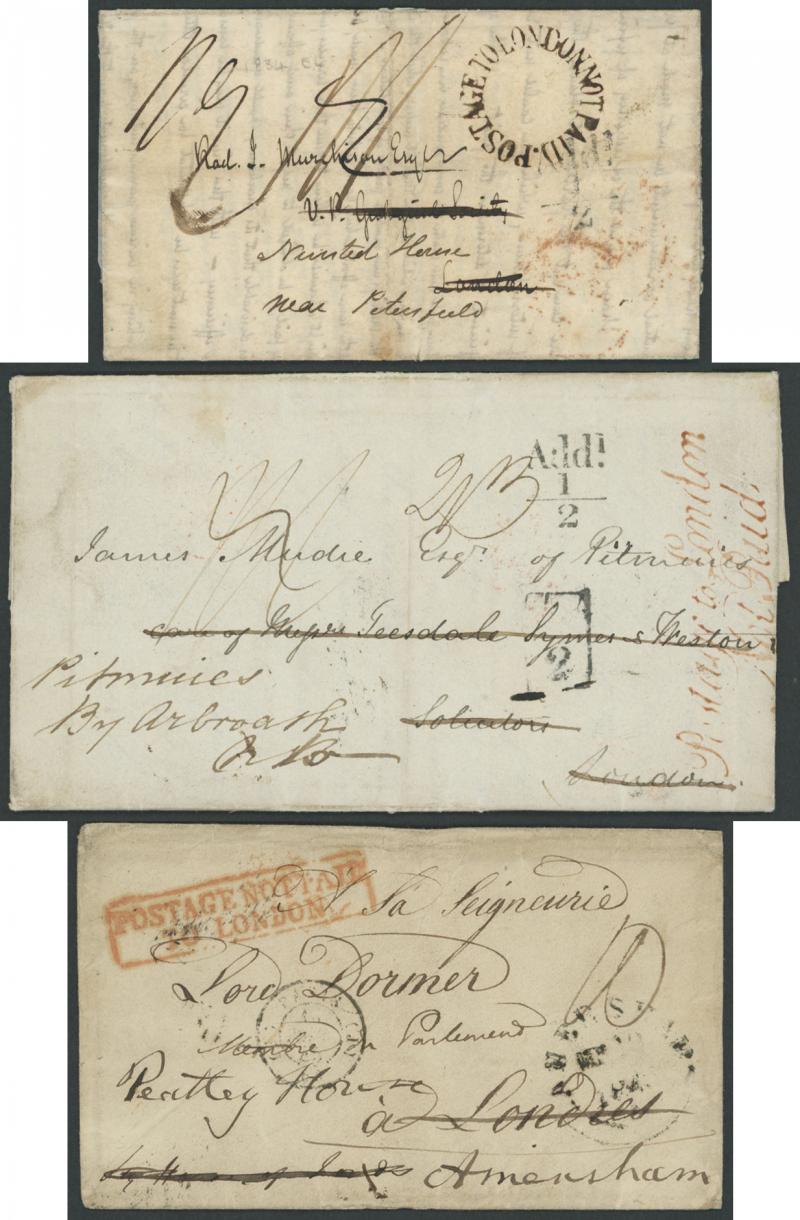 1834
POSTAGE TO LONDON NOT PAID.
Rod. I. Murchison Esqr
V. P. Geological Society
Nursted House
London
near Petersfield
Addl
1
2
2/11
James Mudie Esqr. of Pitmuies
care of Messrs Teesdale Symes & Weston
1
2
Pitmuies
By Arbroath
Solicitors
N B
London
Postage to London
Not Paid.
POSTAGE NOT PAID
TO LONDON
A Sa Seigneurie
Lord Dormer
10
Membre du Parlement
Peatley House
à Londres
Amersham